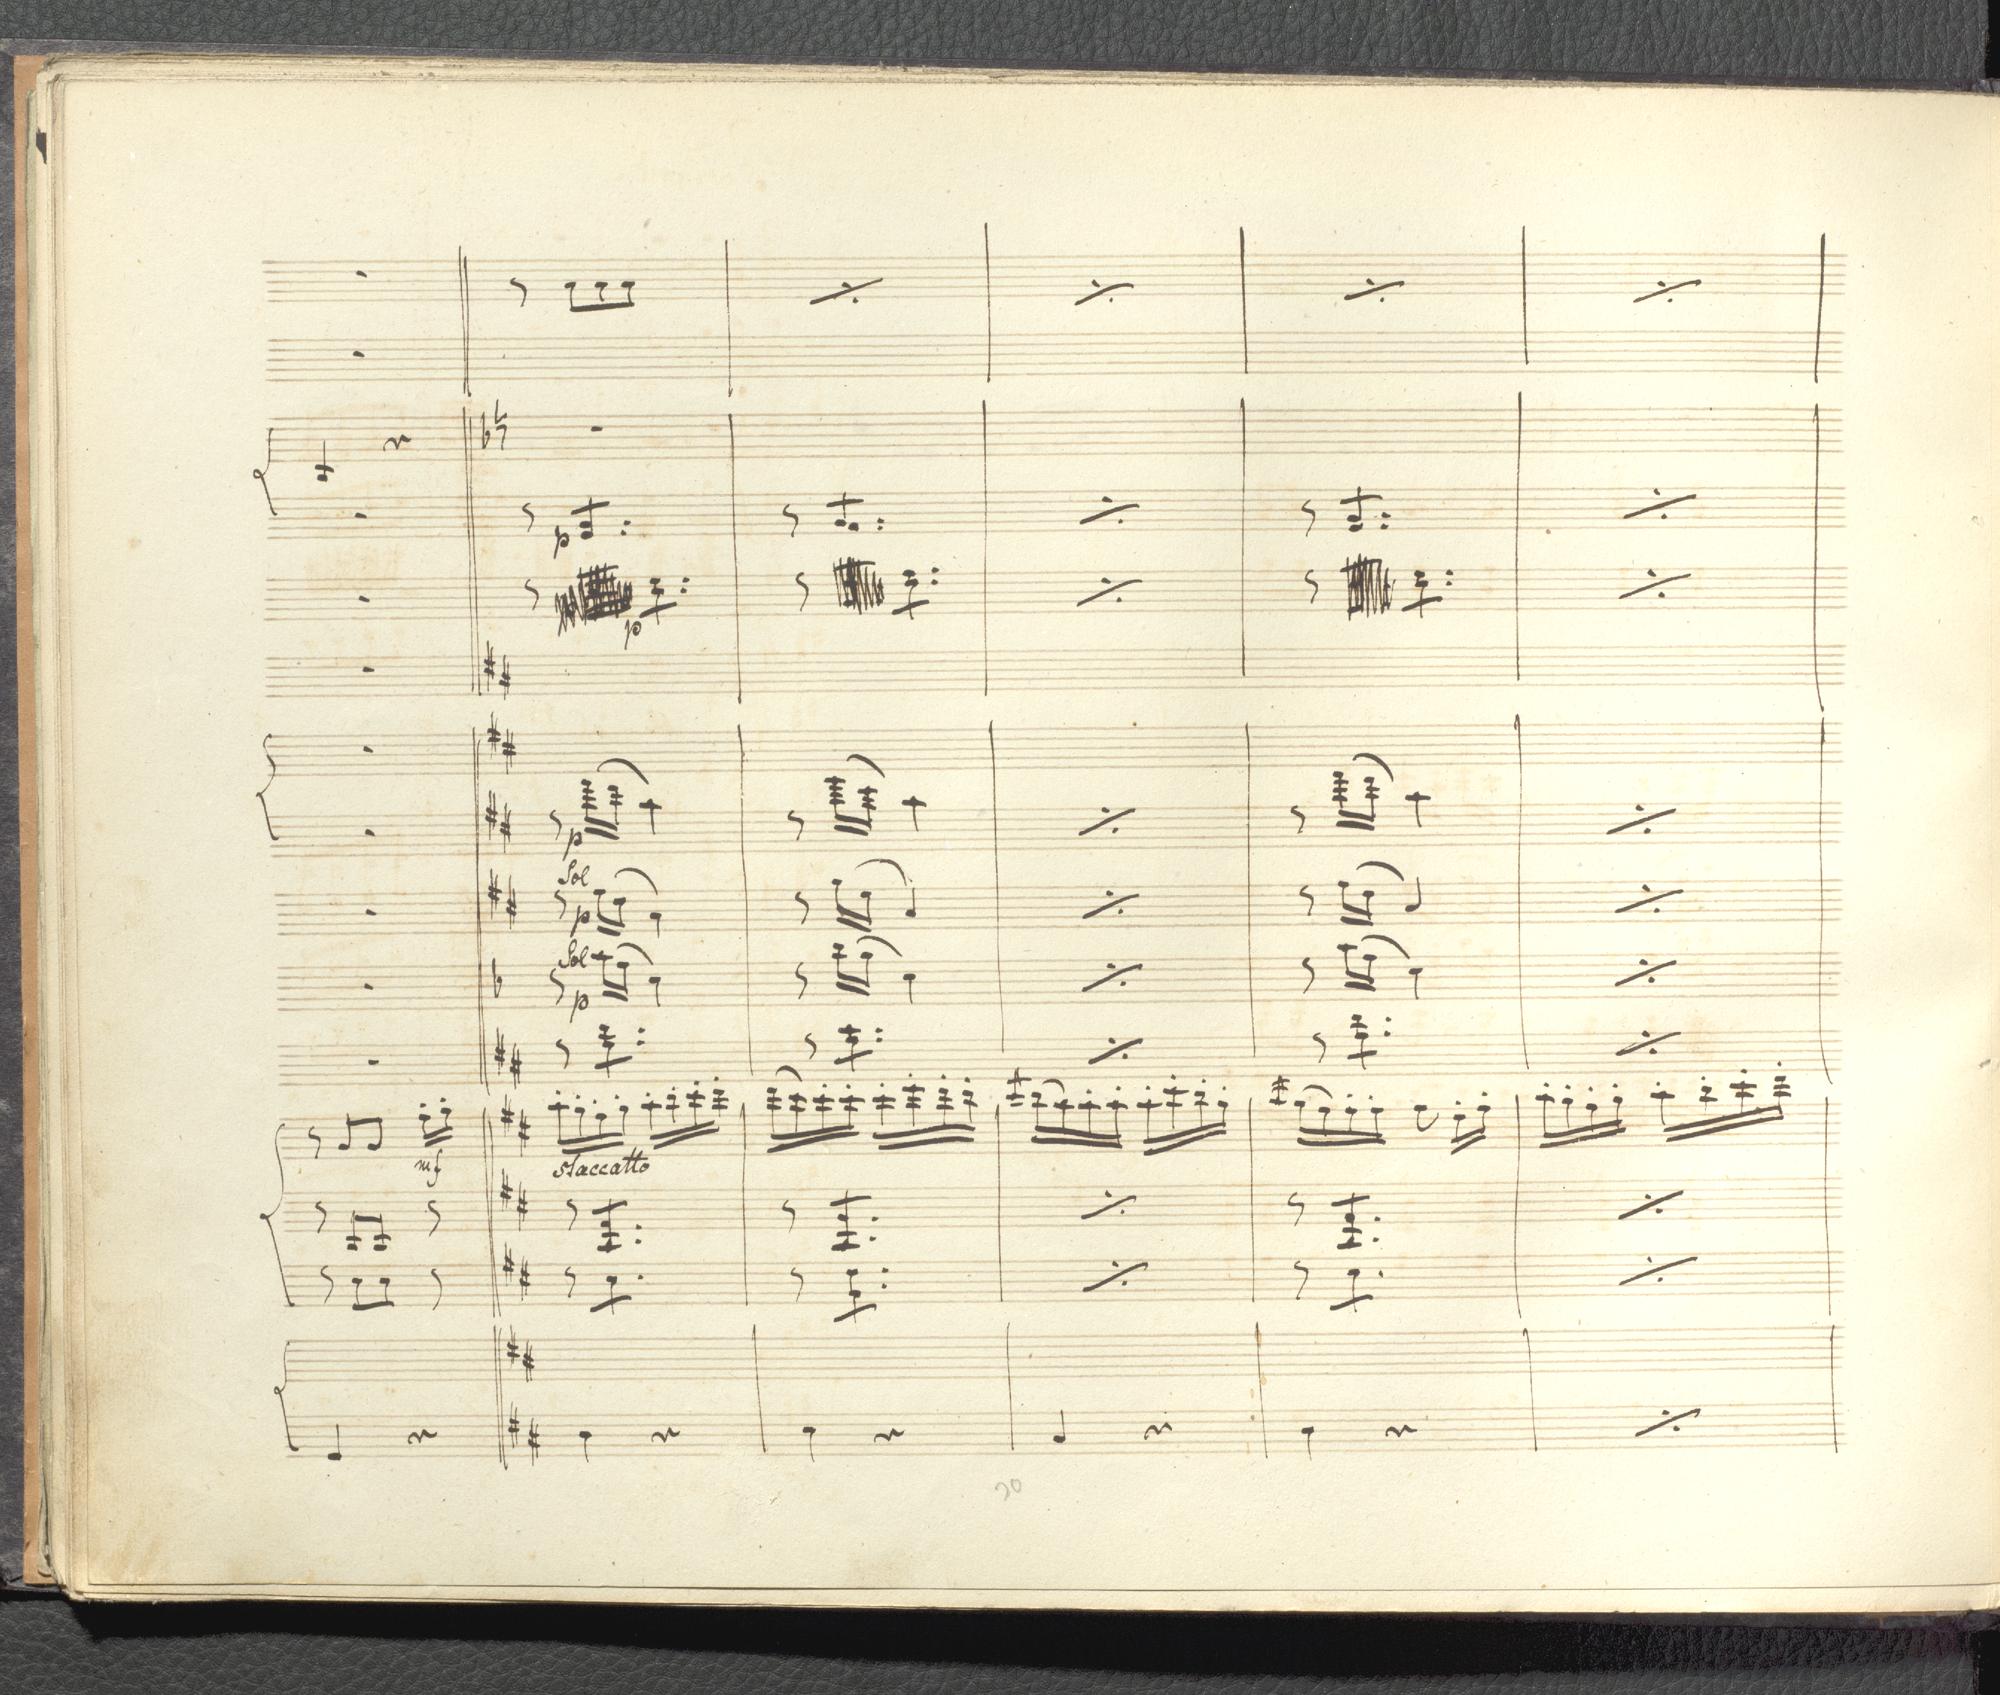 p
p
p
Sol
p
Sol
p
mf
staccatto
20